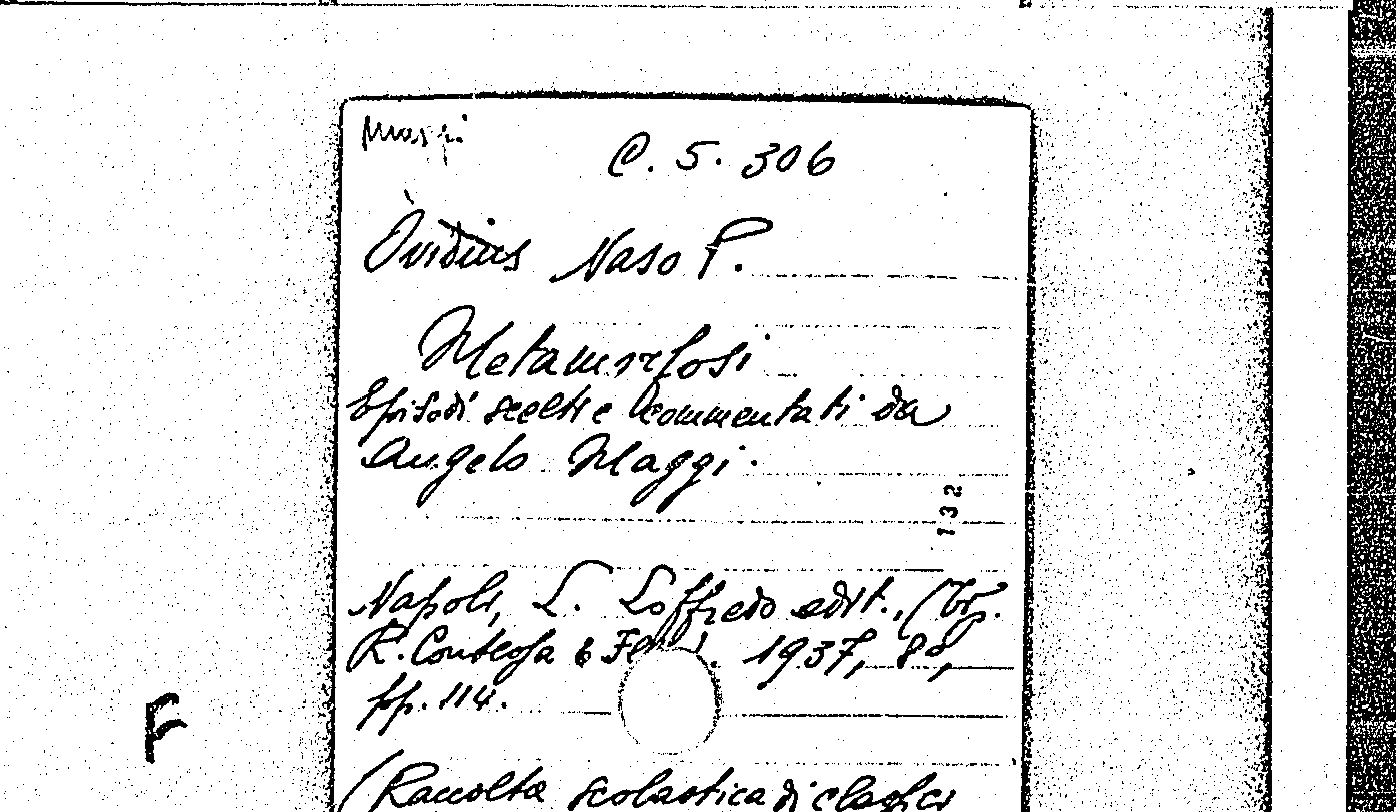 Maggi
C. 5. 306
Ovidius Naso P.
Metamorfosi
Episodi scelti e commentati da
Angelo Maggi.
132
Napoli, L. Loffredo edit., (tip.
R. Contessa & F.lli). 1937, 8º,
pp. 114.
F
(Raccolta scolastica di classici